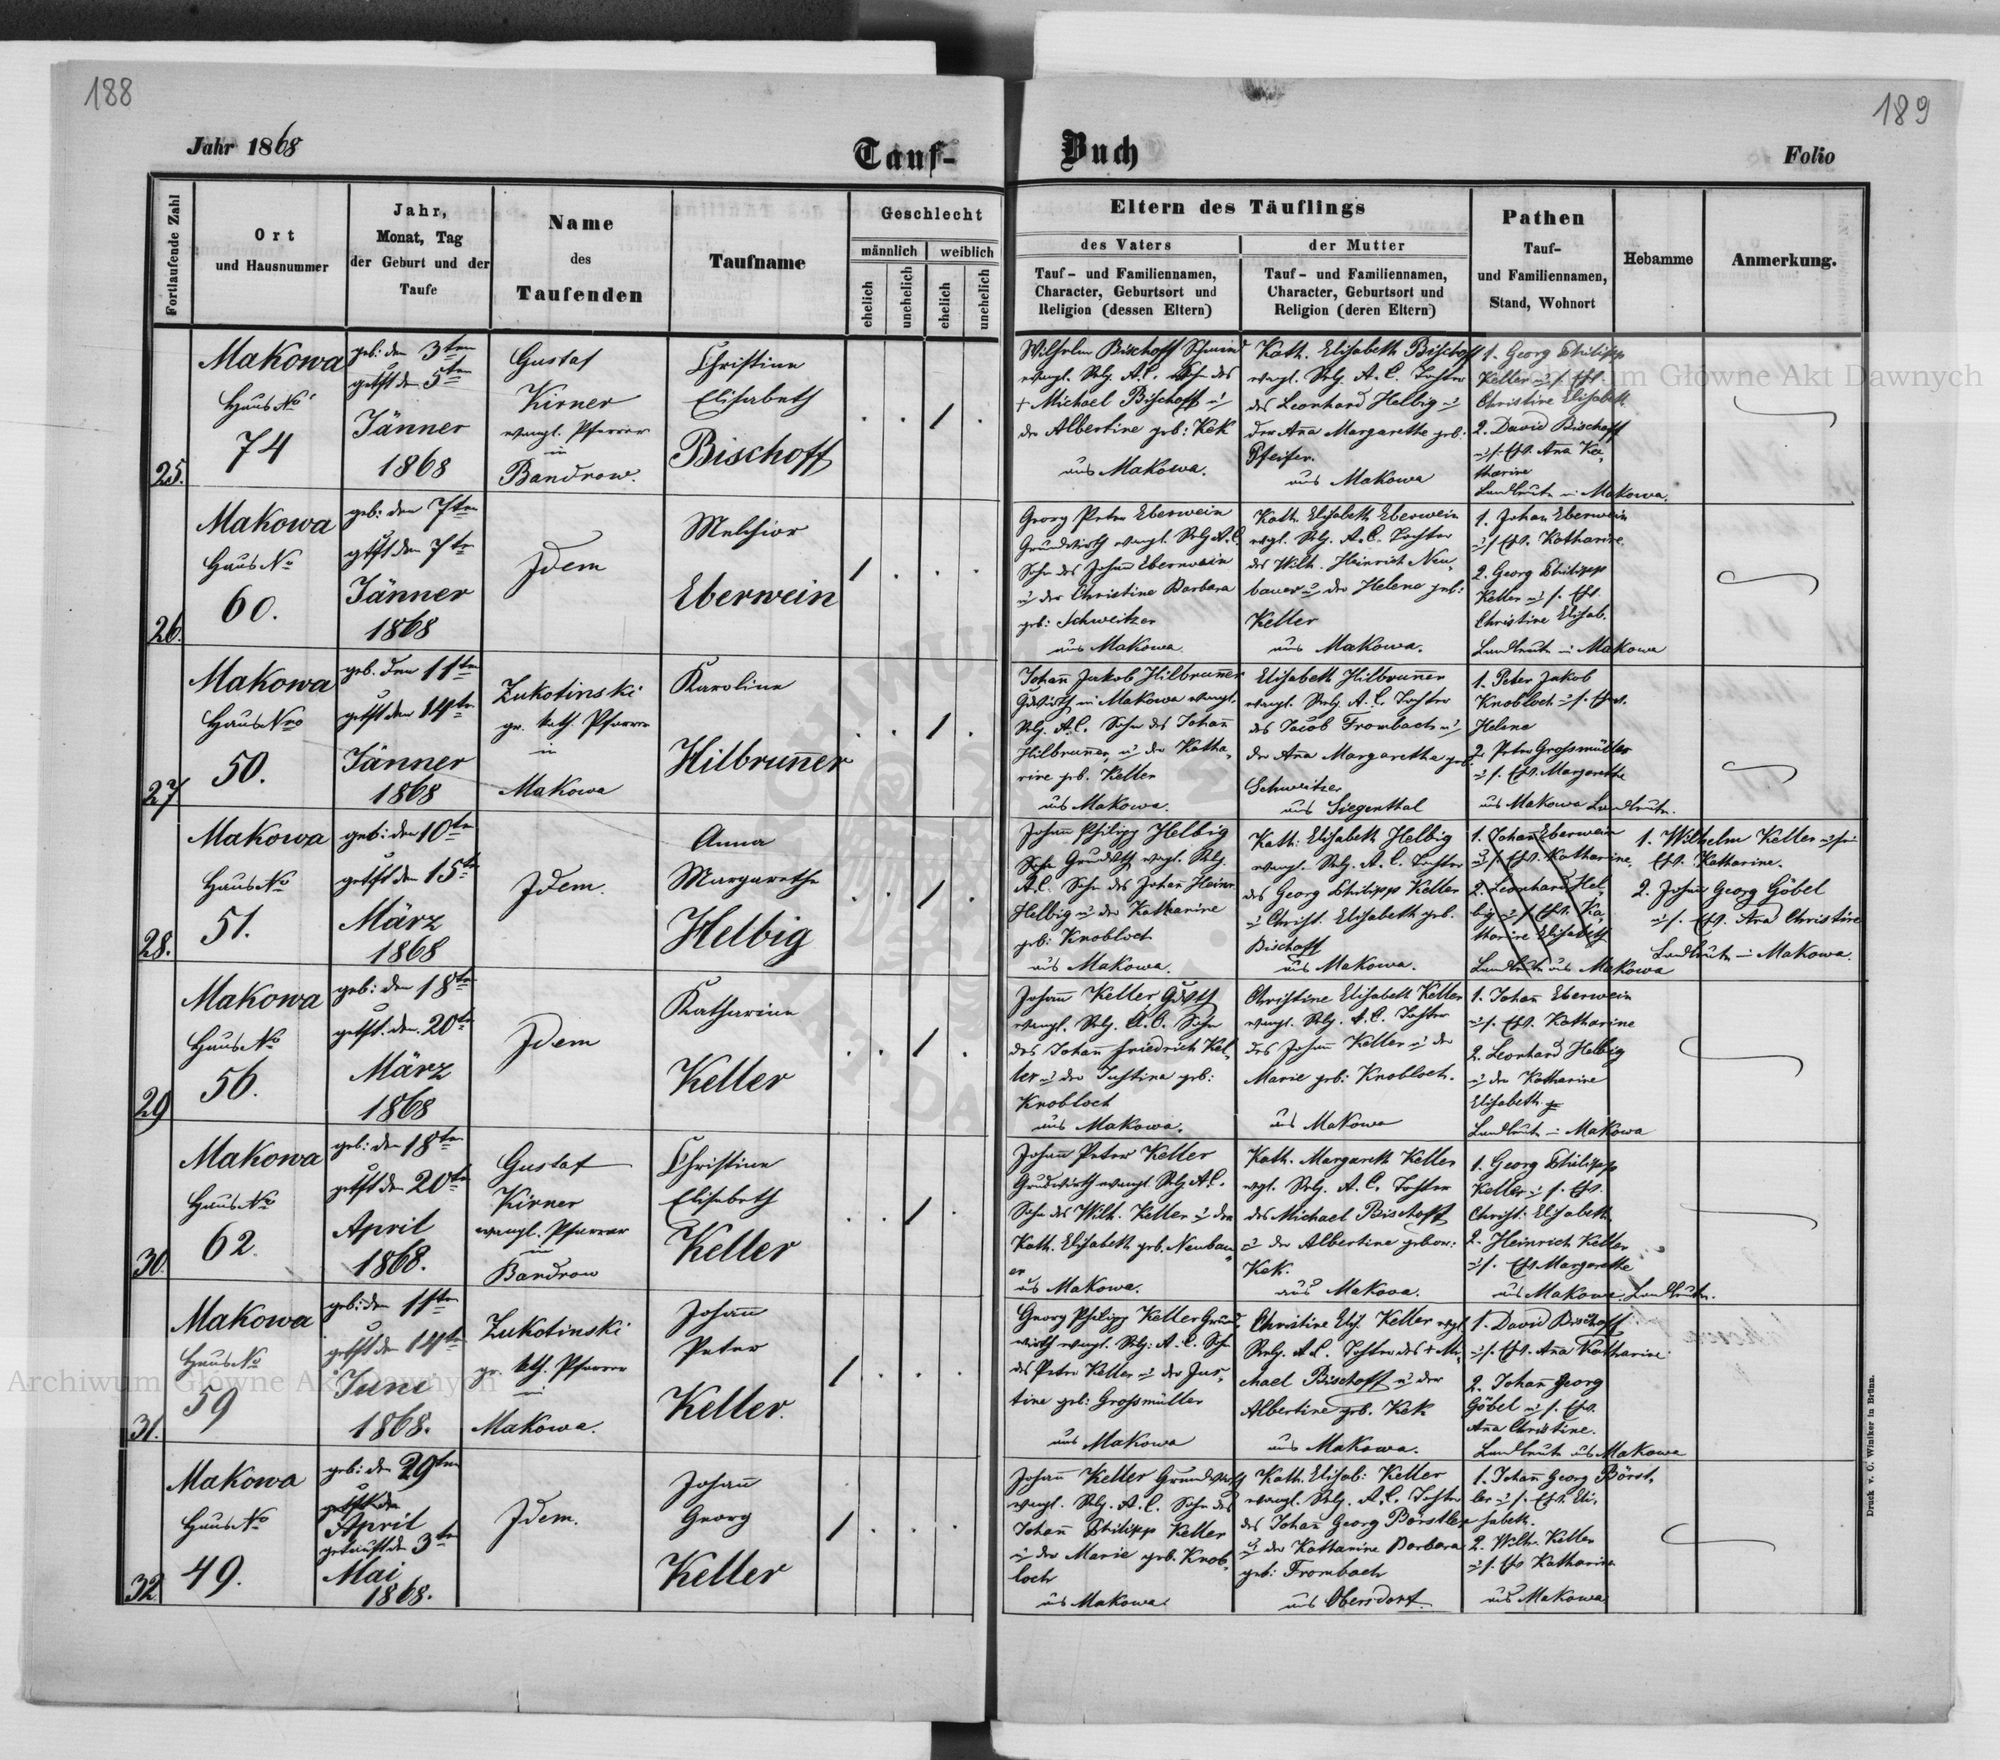 188
189
Jahr 1868
Tauf-
Buch
Folio
Fortlaufende Zahl
Ort
und Hausnummer
Jahr,
Monat, Tag
der Geburt und der
Taufe
Name
des
Taufenden
Taufname
Geschlecht
männlich
weiblich
ehelich
unehelich
ehelich
unehelich
Eltern des Täuflings
des Vaters
Tauf- und Familiennamen,
Character, Geburtsort und
Religion (dessen Eltern)
der Mutter
Tauf- und Familiennamen,
Character, Geburtsort und
Religion (deren Eltern)
Pathen
Tauf-
und Familiennamen,
Stand, Wohnort
Hebamme
Anmerkung.
25.
Makowa
Haus No
74
geb: den 3ten
getft den 5ten
Jänner
1868
Gustaf
Kirner
evangl. Pfarrer
in
Bandrow.
Christine
Elisabeth
Bischoff
Wilhelm Bischoff Schmied
evangl. Relg. A.C. Sohn des
+ Michael Bischoff u
der Albertine geb: Kek
aus Makowa.
Kath. Elisabeth Bischoff
evangl. Relg. A.C. Tochter
des Leonhard Helbig u
der Ana Margarethe geb:
Pfeifer.
aus Makowa
1. Georg Philipp
Keller u s. Eht.
Christine Elisabeth
2. David Bischoff
u s. Eht. Ana Ka,
tharine
Landleute in Makowa.
26.
Makowa
Haus No
60.
geb: den 7ten
gtft den 7ten
Jänner
1868
Idem
Melchior
Eberwein
Georg Peter Eberwein
Grundwirth evangl. Relg A.C.
Sohn des Johann Eberwein
u der Christine Barbara
geb: Schweitzer
aus Makowa.
Kath. Elisabeth Eberwein
evgl. Relg. A.C. Tochter
des Wilh. Heinrich Neu,
bauer u der Helene geb:
Keller
aus Makowa.
1. Johan Eberwein
u s Eht. Katharine.
2. Georg Philipp
Keller u s. Eht.
Christine Elisab.
Landleute in Makowa
27
Makowa
Haus Nro
50.
geb. den 11ten
getft den 14ten
Jänner
1868
Zukotinski
gr. kath. Pfarrer
in
Makowa
Karoline
Hilbruner
Johan Jakob Hilbruner
Gdwirth in Makowa evangl.
Relg. A.C. Sohn des Johann
Hilbruner u der Katha,
rine geb. Keller
aus Makowa.
Elisabeth Hilbruner
evangl. Relg. A.C. Tochter
des Jacob Frombach u
der Ana Margaretha geb:
Schweitzer
aus Siegenthal
1. Peter Jakob
Knobloch u s. Eht.
Helene
2. Peter Grossmüller
u s. Eht. Margarethe
aus Makowa Landleute.
28.
Makowa
Haus No
51.
geb: den 10ten
getft den 15ten
März
1868
Idem.
Anna
Margarethe
Helbig
Johann Philipp Helbig
Grudwth evgl. Relg.
A.C. Sohn des Johan Heinr.
Helbig u der Katharine
geb: Knobloch
aus Makowa.
Kath: Elisabeth Helbig
evangl. Relg. A.C. Tochter
des Georg Philipp Keller
u Christ. Elisabeth geb.
Bischoff
aus Makowa.
1. Johan Eberwein
u s. Eht. Katharine.
2. Leonhard Hel,
big u s. Eht. Ka,
tharine Elisabeth
Landleute aus Makowa
1. Wilhelm Keller u sein
Eht. Katharine.
2. Johan Georg Göbel
u s. Eht. Ana Christine
Landleute in Makowa.
29
Makowa
Haus No
56.
geb: den 18ten
getft. den. 20ten
März
1868
Idem
Katharine
Keller
Johann Keller Gdwth
evangl. Relg. A.C. Sohn
des Johan Friedrich Kel,
ler u der Justina geb:
Knobloch
aus Makowa.
Christine Elisabeth Keller
evangl. Relg. A.C. Tochter
des Johann Keller u der
Marie geb: Knobloch.
aus Makowa
1. Johan Eberwein
u s. Eht. Katharine
2. Leonhard Helbig
u der Katharine
Elisabeth
Landleute in Makowa
30.
Makowa
Haus No
62.
geb: den 18ten
getft den 20ten
April
1868.
Gustaf
Kirner
evangl. Pfarrer
in
Bandrow
Christine
Elisabeth
Keller
Johann Peter Keller
Grudwirth evangl. Relg A.C.
Sohn des Wilh. Keller u der
Kath. Elisabeth geb. Neubau,
er
aus Makowa.
Kath. Margareth Keller
evgl. Relg. A.C. Tochter
des Michael Bischoff
u der Albertine gebor:
Kek.
aus Makova.
1. Georg Philipp
Keller u s. Eht.
Christ: Elisabeth
2. Heinrich Keller
u s. Eht Margarethe
aus Makowa. Landleute.
31.
Makowa
Haus No
59
geb: den 11ten
getft den 14ten
Juni
1868.
Zukotinski
gr. kth. Pfarrer
in
Makowa.
Johann
Peter
Keller.
Georg Philipp Keller Grund,
wirth evangl. Relg: A.C. Sohn
des Peter Keller u der Jus,
tine geb: Grossmüller
aus Makowa
Christine Elis Keller evgl
Relg. A.C. Tochter des + Mi,
chael Bischoff u der
Albertine geb. Kek
aus Makowa.
1. David Bischoff
u s. Eht. Ana Katharine.
2. Johan Georg
Göbel u s. Eht.
Ana Christine.
Landleute aus Makowa
32.
Makowa
Haus No
49.
geb: den 29ten
getft den
April
getauft den 3ten
Mai
1868.
Idem.
Johann
Georg
Keller
Johann Keller Grundwirth
evangl. Relg. A.C. Sohn des
Johan Philipp Keller
u der Marie geb. Knob,
loch
aus Makowa.
Kath. Elisab: Keller
evangl. Relg. A.C. Tochter
des Johan Georg Börstler
u der Katharine Barbara
geb: Frombach
aus Obersdorf.
1. Johan Georg Börst,
ler u s. Eht. Eli,
sabeth.
2. Wilh. Keller
u s. Eht Katharine
aus Makowa.
Druck v. C. Winiker in Brünn.
Archiwum Główne Akt Dawnych
Archiwum Główne Akt Dawnych